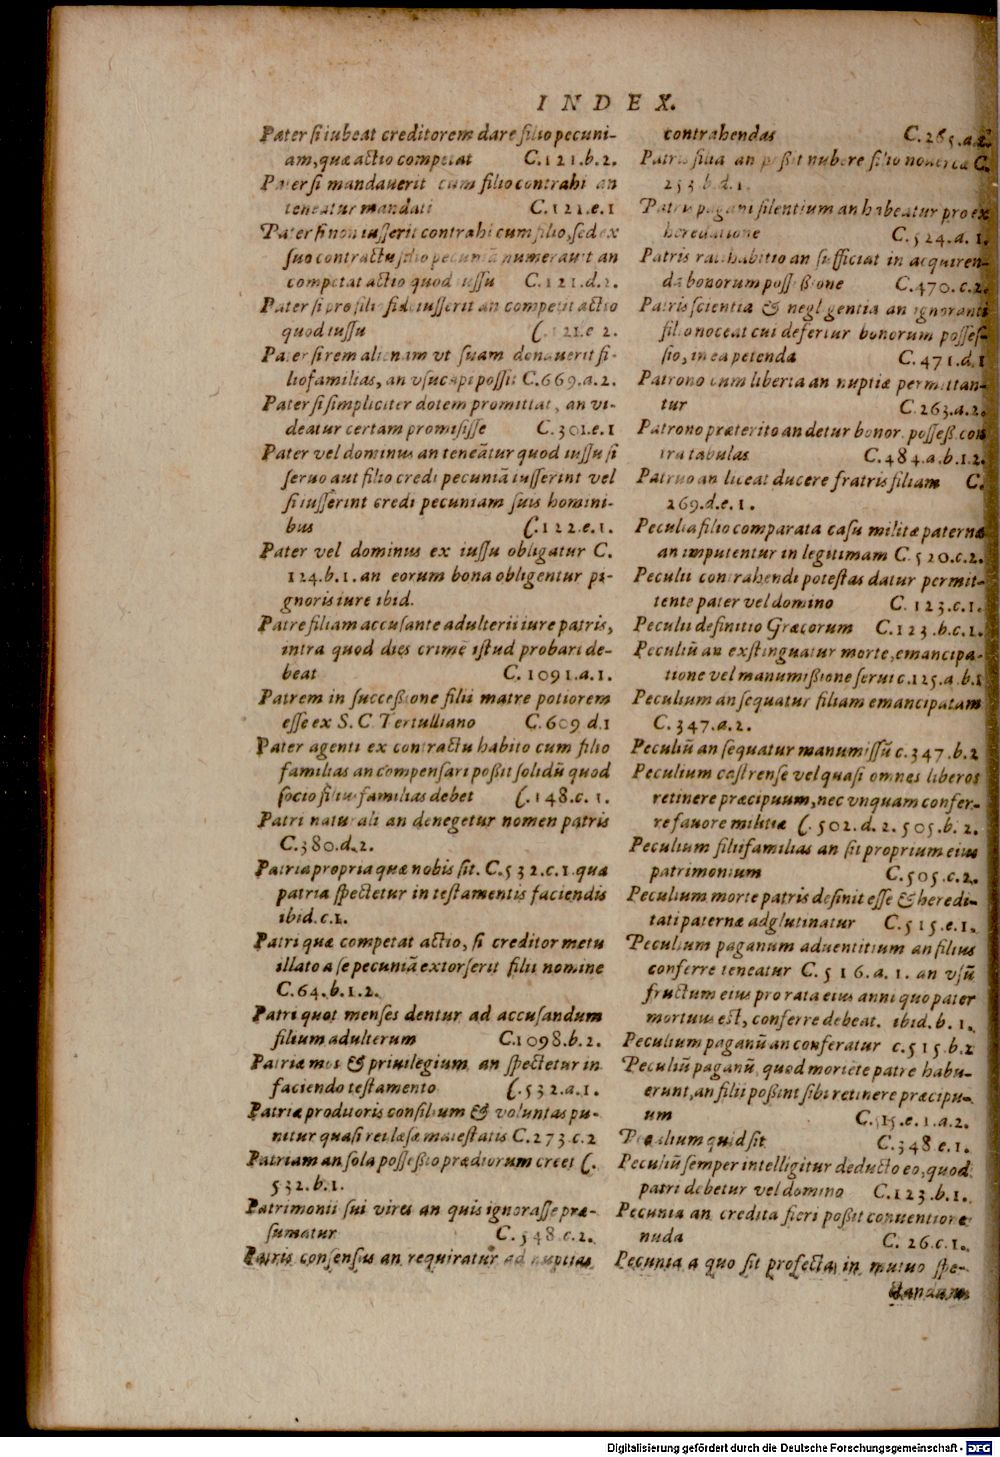 INDEX.
Pater si iubeat creditorem dare filio pecuni-
am, quæ actio competat C.121.b.2.
Pater si mandauerit cum filio contrahi an
teneatur mandati C.121.e.1
Pater si non iusserit contrahi cum filio, sed ex
suo contractu filio pecuniā numerauit an
competat actio quod iussu C.121.d.2.
Pater si pro filio fideiusserit an competit actio
quod iussu C.121.e 2.
Pater si rem alienam vt suam donauerit fi-
liofamilias, an vsucapi possit C.669.a.2.
Pater si simpliciter dotem promittat, an vi-
deatur certam promisisse C.301.e.1
Pater vel dominus an teneātur quod iussu si
seruo aut filio credi pecuniā iusserint vel
si iusserint credi pecuniam suis homini-
bus C.122.e.1.
Pater vel dominus ex iussu obligatur C.
124.b.1. an eorum bona obligentur pi-
gnoris iure ibid.
Patre filiam accusante adulterii iure patris,
intra quod dies crimē istud probari de-
beat C. 1091.a.1.
Patrem in successione filii matre potiorem
esse ex S. C Tertulliano C.609 d.1
Pater agenti ex contractu habito cum filio
familias an compensari possit solidū quod
socio filiusfamilias debet C.148.c.1.
Patri naturali an denegetur nomen patris
C.380.d.2.
Patria propria quæ nobis sit. C.532.c.1. qua
patria spectetur in testamentis faciendis
ibid.c.1.
Patri quæ competat actio, si creditor metu
illato a se pecuniā extorserit filii nomine
C.64.b.1.2.
Patri quot menses dentur ad accusandum
filium adulterum C.1098.b.2.
Patriæ mos & priuilegium an spectetur in
faciendo testamento C.532.a.1.
Patriæ proditoris consilium & voluntas pu-
nitur quasi rei læsæ maiestatis C.273.c.2
Patriam an sola possessio prædiorum creet C.
532.b.1.
Patrimonii sui vires an quis ignorasse præ-
sumatur C.548.c.2.
Patris consensus an requiratur ad nuptias
contrahendas
Patris filia an possit nubere filio nouercæ C.
253.b.d.1.
Patris pagani silentium an habeatur pro ex
heredatione C.524.a.1.
Patris ratihabitio an sufficiat in acquiren-
da bonorum possessione C.470.c.2.
Patris scientia & negligentia an ignoranti
filio noceat cui defertur bonorum posses-
sio, in ea petenda C.471.d.1
Patrono cum liberta an nuptiæ permittan-
tur C.263.a.2.
Patrono præterito an detur bonor. posseß. con
tra tabulas C.484.a.b.1.2.
Patruo an liceat ducere fratris filiam C.
269.d.e.1.
Peculia filio comparata casu militæ paternæ
an imputentur in legitimam C.520.c.2.
Peculii contrahendi potestas datur permit-
tente pater vel domino C.123.c.1.
Peculii definitio Græcorum C.123.b.c.1.
Peculiū an exstinguatur morte, emancipa-
tione vel manumissione serui c.125.a.b.1
Peculium an sequatur filiam emancipatam
C.347.a.2.
Peculiū an sequatur manumissū c.347.b.2
Peculium castrense vel quasi omnes liberos
retinere præcipuum, nec vnquam confer-
re fauore militiæ C.502.d.2.505.b.2.
Peculium filiifamilias an sit proprium eius
patrimonium C.505.c.2.
Peculium morte patris definit esse & heredi-
tati paternæ adglutinatur C.515.e.1.
Peculium paganum aduentitium an filius
conferre teneatur C.516.a.1. an vsū
fructum eius pro rata eius anni quo pater
mortuus est, conferre debeat. ibid.b.1.
Peculium paganū an conferatur c.515.b.2
Peculiū paganū, quod moriēte patre habu-
erunt, an filii possint sibi retinere præcipu-
um C.515.e.1.a.2.
Peculium quid sit C.348.e.1.
Peculiū semper intelligitur deducto eo, quod
patri debetur vel domino C.123.b.1.
Pecunia an credita fieri possit conuentione
nuda C.26.c.1.
Pecunia a quo sit profecta, in mutuo spe-
ctandam
Digitalisierung gefördert durch die Deutsche Forschungsgemeinschaft - DFG